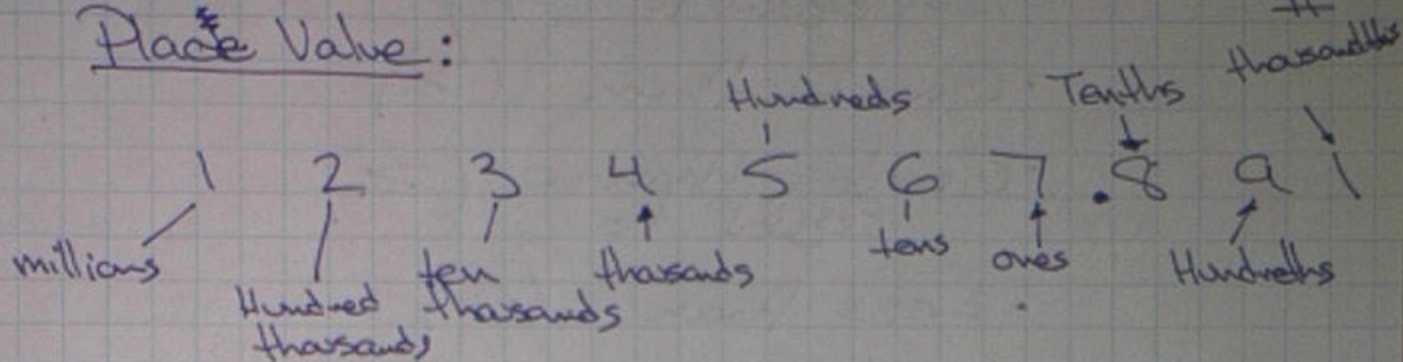 Place Value:
thousandths
Hundreds Tenths
1 2 3 4 5 6 7 .8 9 1
millions
Hundred thousands
ten thousands
thousands
tens
ones
Hundreths